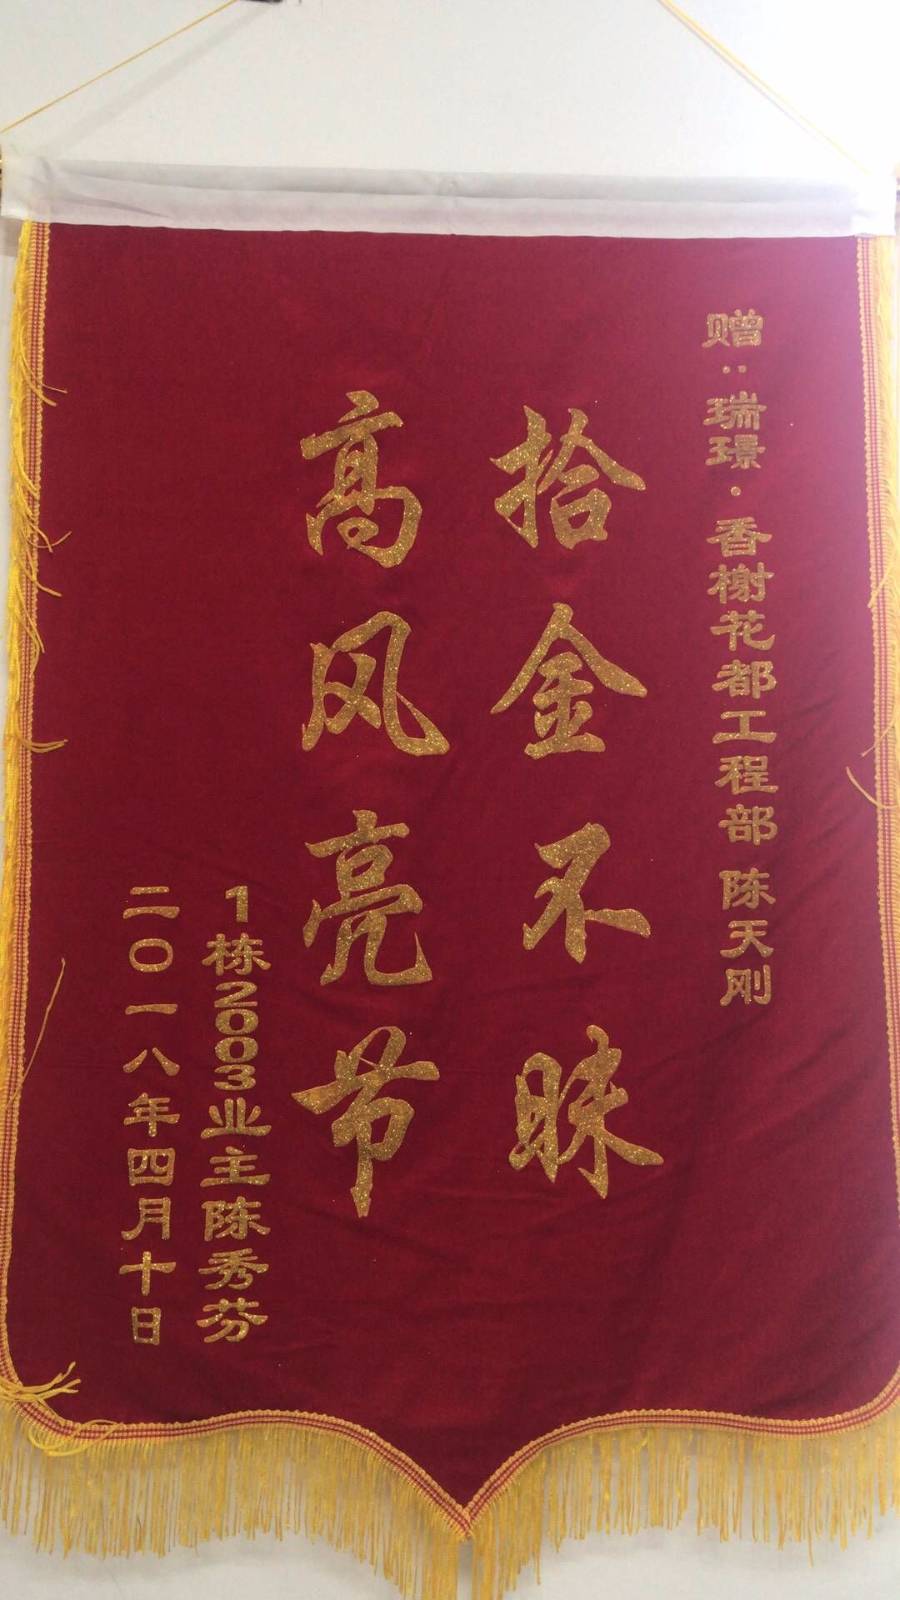 赠：瑞璟·香榭花都工程部 陈天刚
拾金不昧
高风亮节
1栋2003业主陈秀芬
二〇一八年四月十日